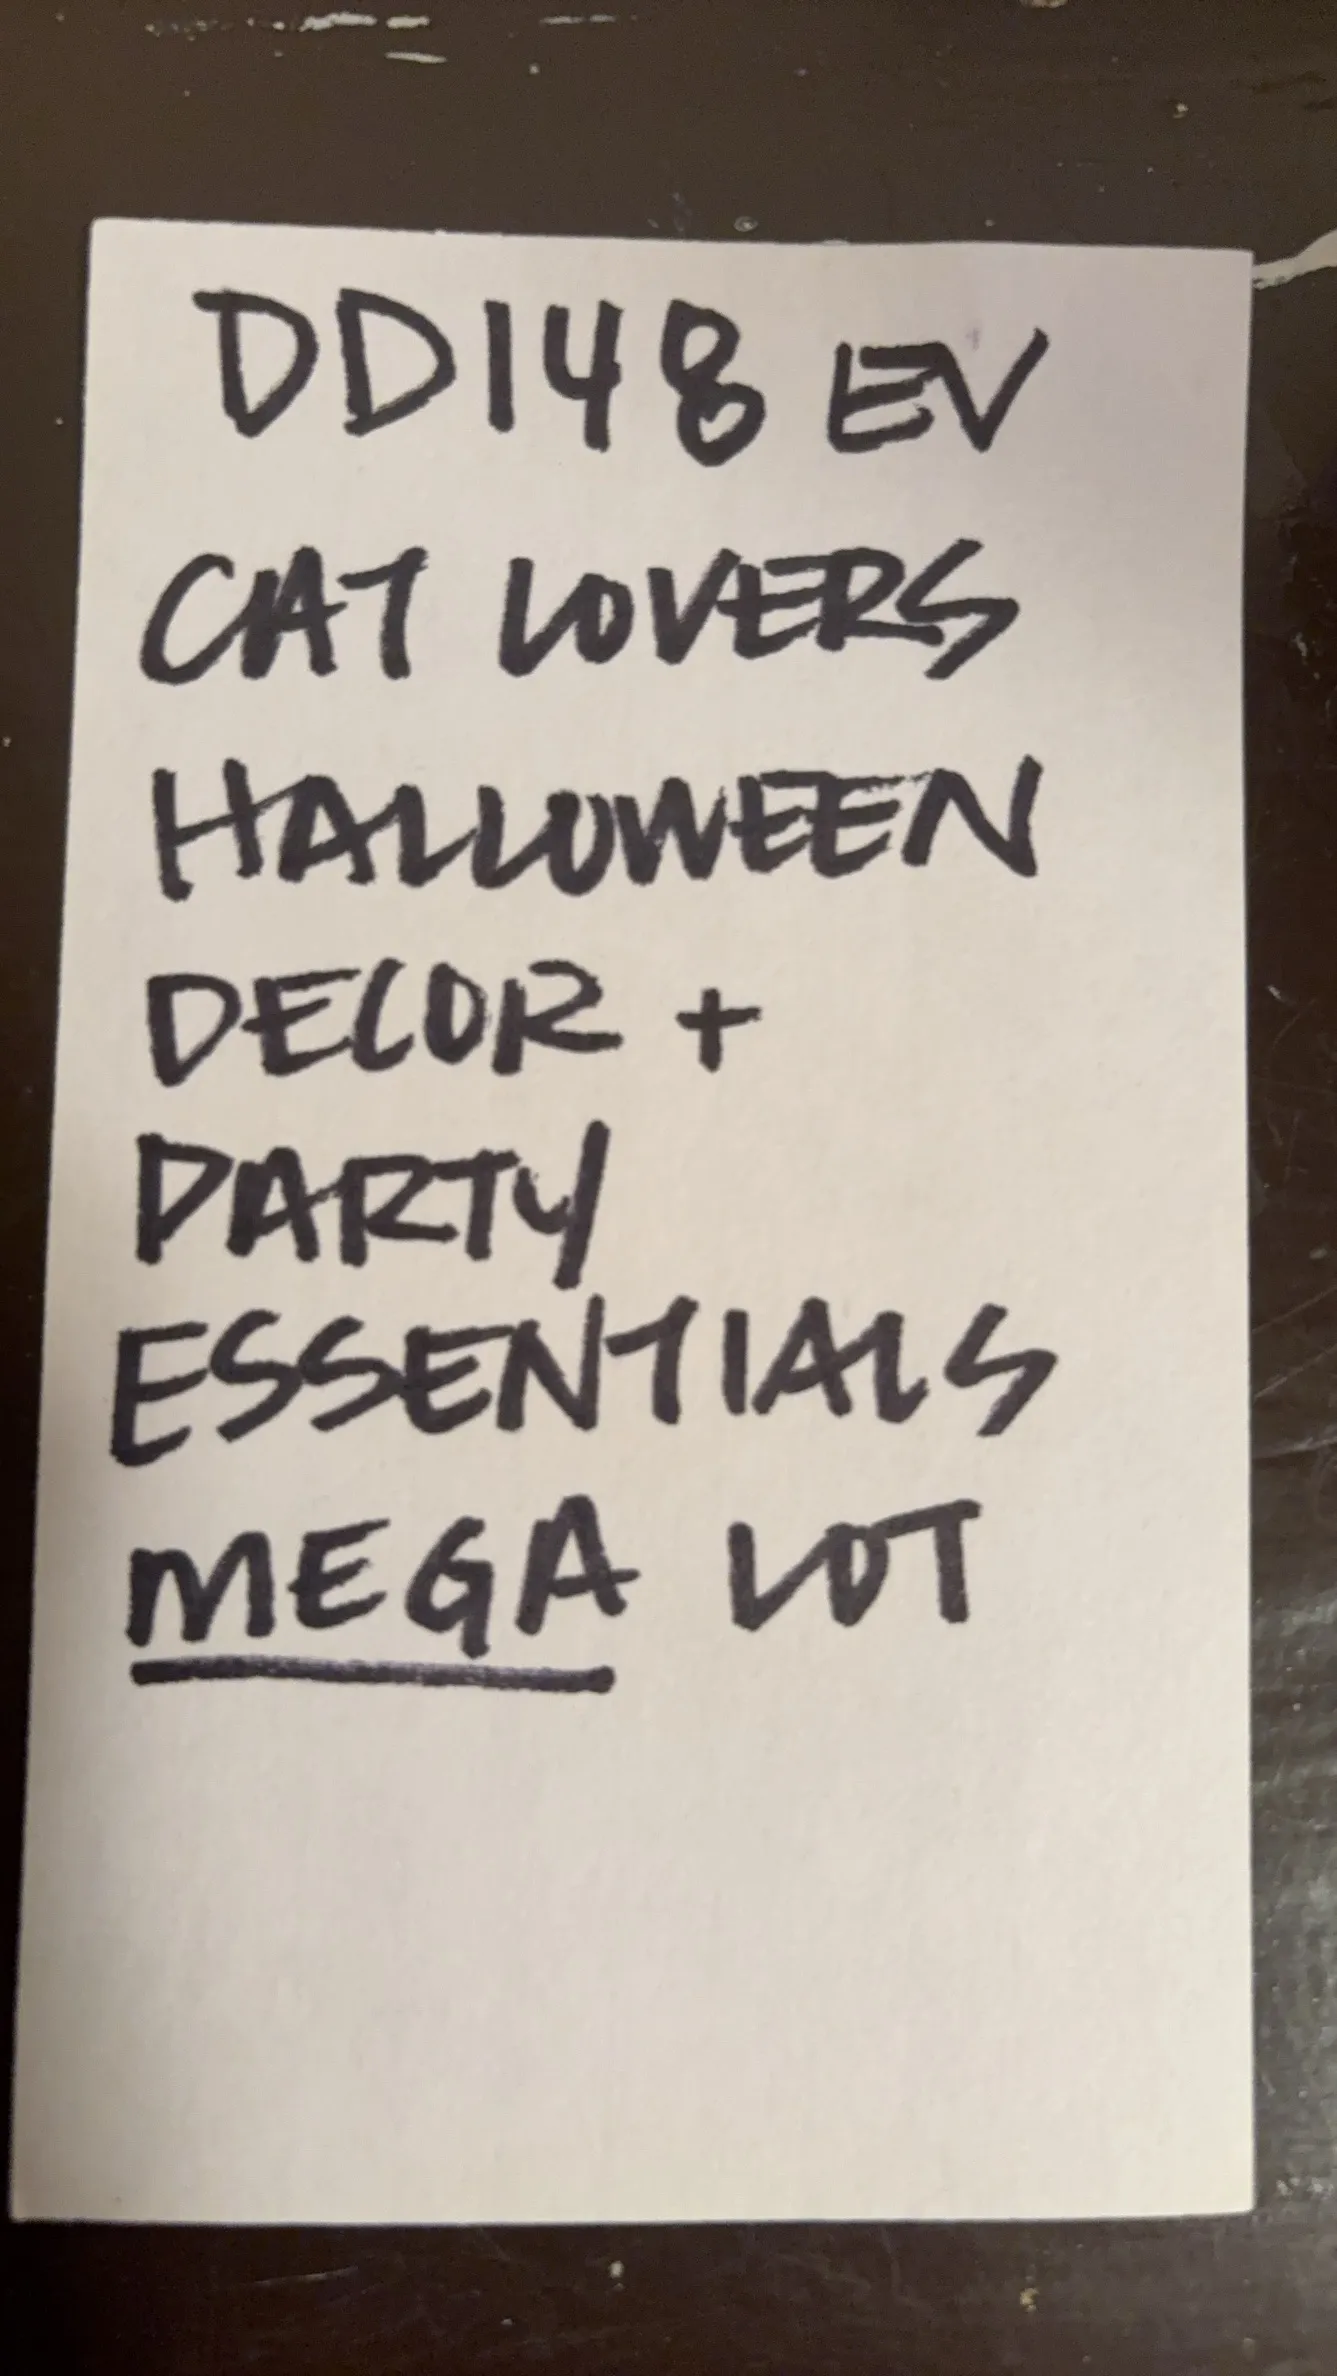 DD148 EV
CAT LOVERS
HALLOWEEN
DECOR +
PARTY
ESSENTIALS
MEGA LOT